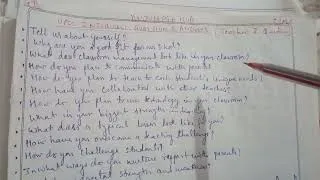 KNOWLEDGE HUB
Interview Questions & Answers
Tell us about yourself?
Why are you a good fit for our School?
What does classroom management look like in your classroom?
How do you plan to communicate with parents?
How do you plan to each student's unique needs?
How have you collaborated with other teachers?
How do you plan to use technology in your classroom
What is your biggest strength
What does a typical lesson look like for you?
How have you overcome a teaching challenge?
How do you challenge students?
In what ways do you nurture rapport with parents?
strength and weakness